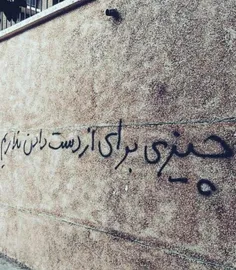 چیزی برای از دست دادن نداریم